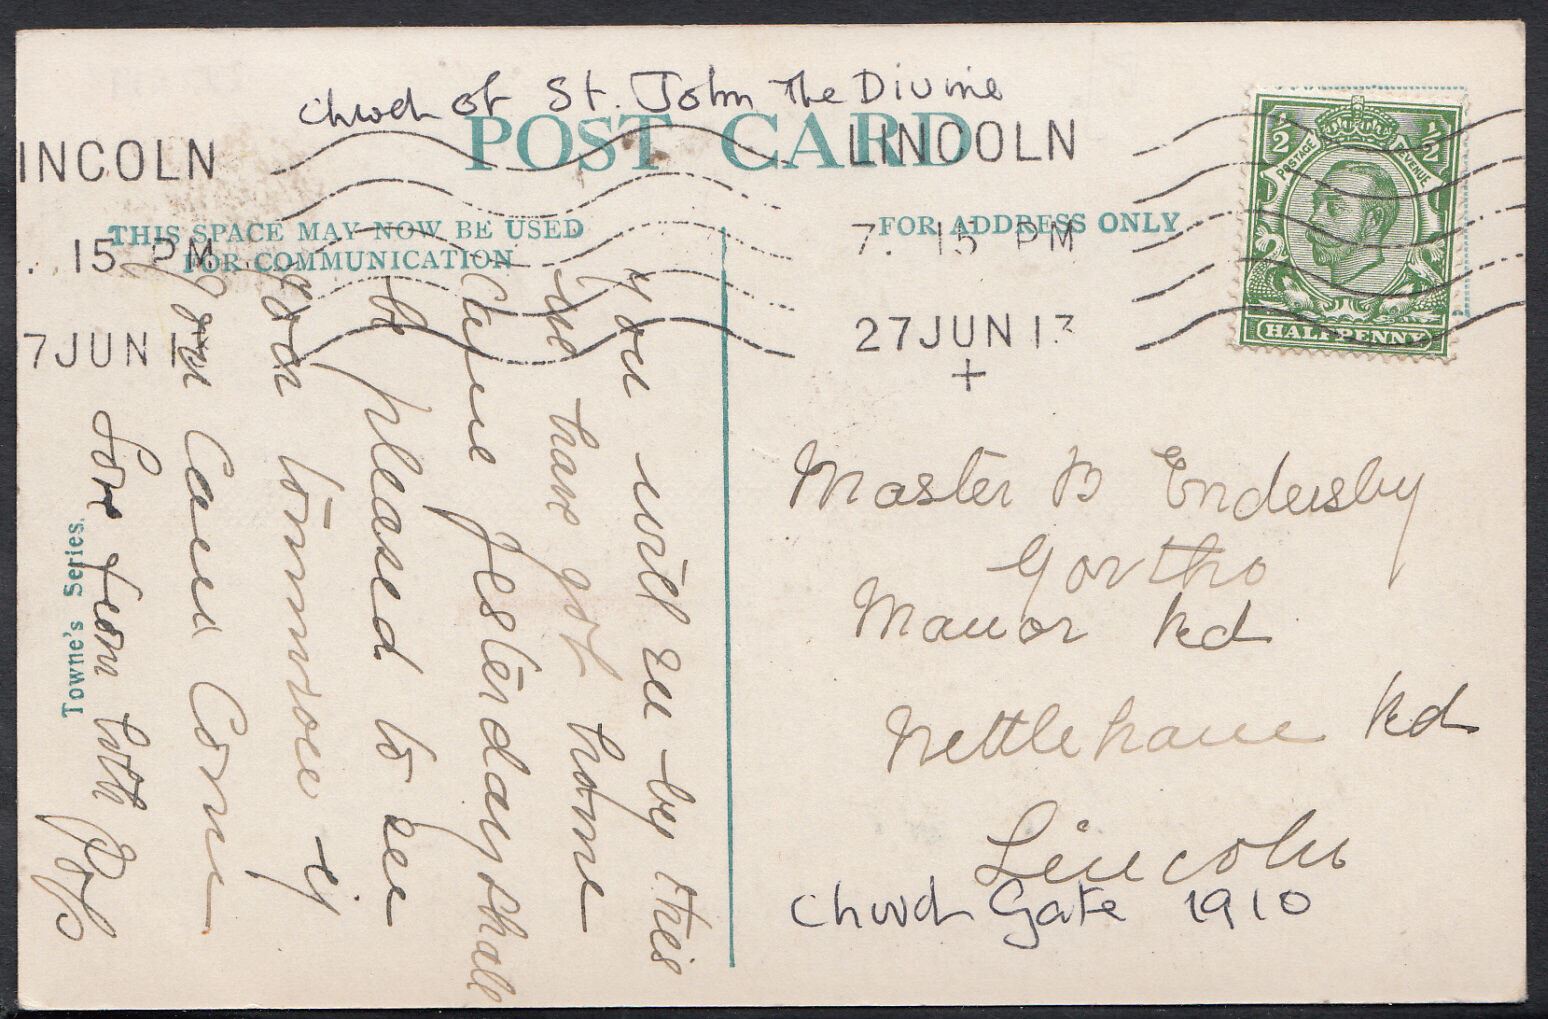 Church of St. John The Divine
POST CARD
LINCOLN
7. 15 PM
27 JUN 13
+
INCOLN
. 15 PM
7 JUN 1
½ ½
POSTAGE REVENUE
HALFPENNY
THIS SPACE MAY NOW BE USED
FOR COMMUNICATION
FOR ADDRESS ONLY
You will see by this
we have got home
came yesterday shall
be pleased to see
you tomorow if
you can come
love from both
Towne's Series.
Master B Endersby
Gortho
Manor Rd
Nettlehame Rd
Lincoln
Church Gate 1910